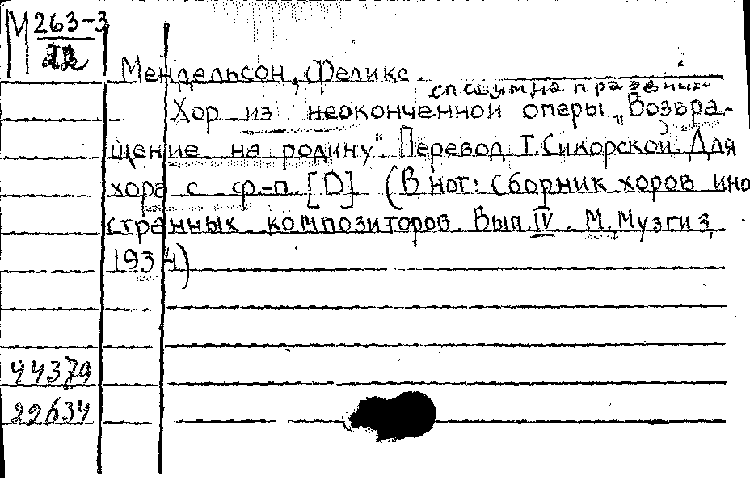 М 263-3
Мендельсон, Феликс.
спешим на праздник
Хор из неоконченной оперы „Возвра-
щение на родину" Перевод Т. Сикорской. Для
хора с ф-п. [D]. (В нот: Сборник хоров ино
странных композиторов. Вып. IV. М. Музгиз,
1934)
44379
22634